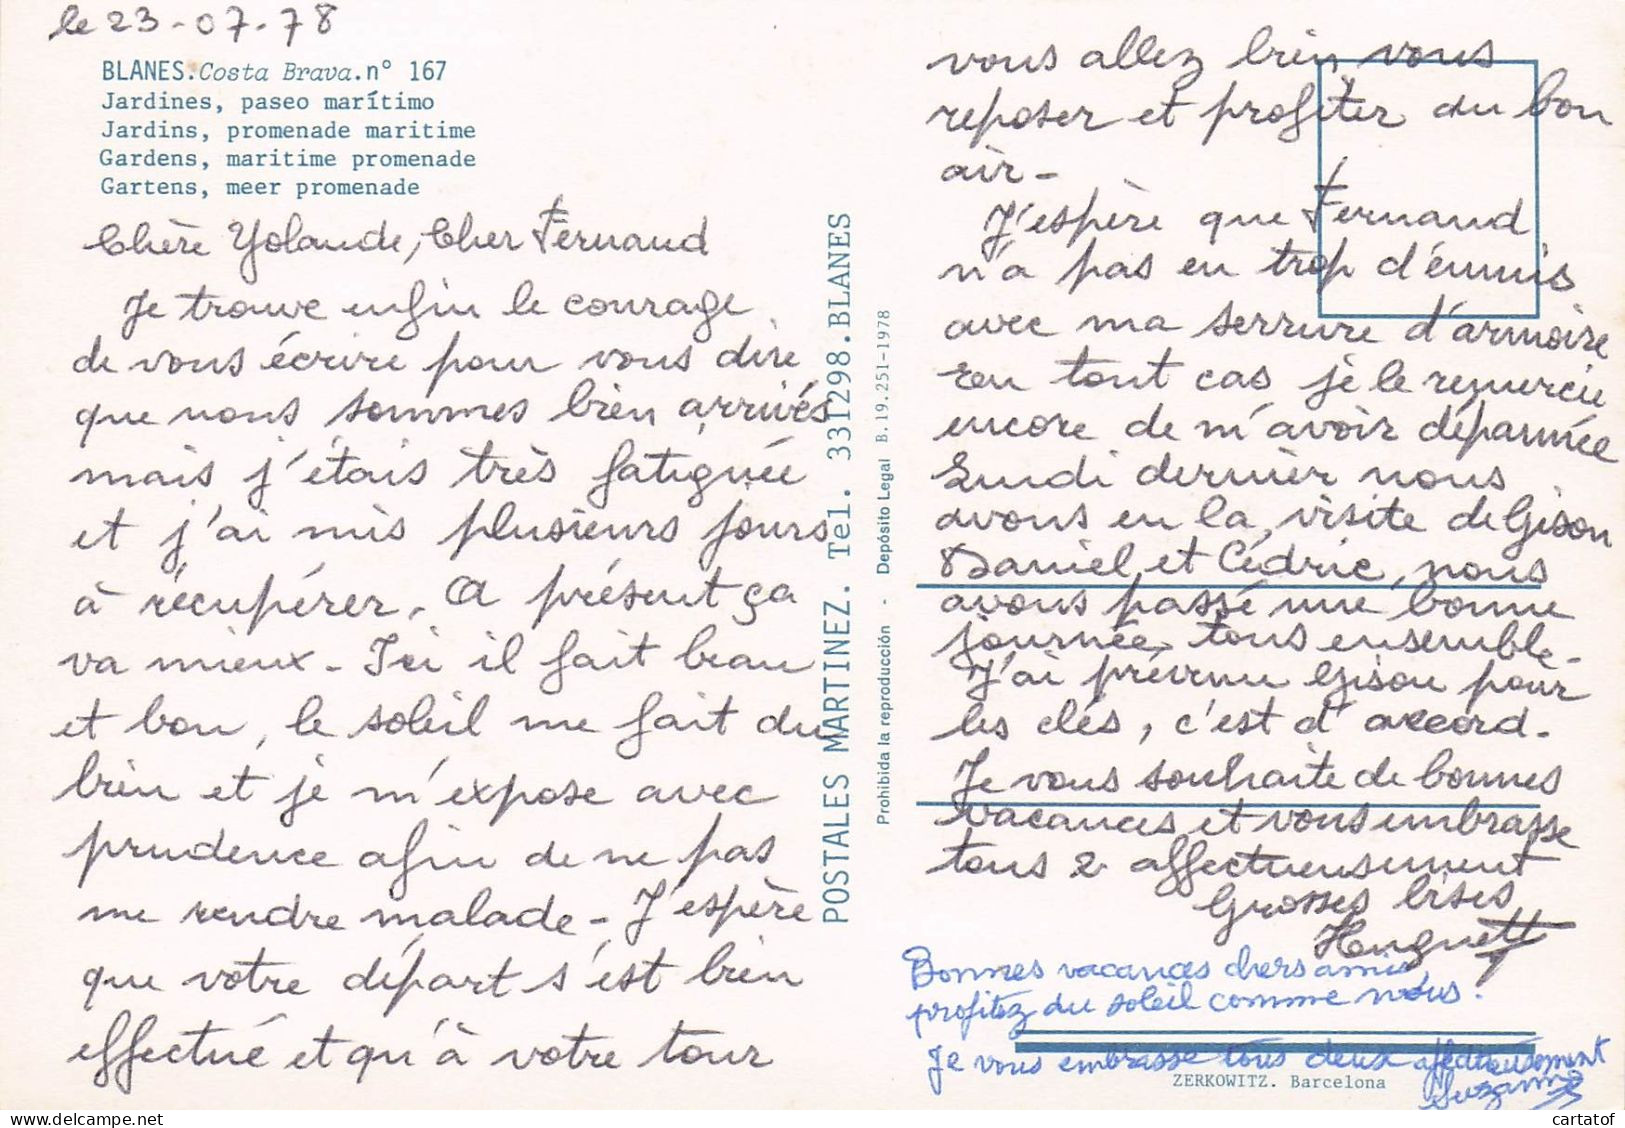 le 23-07-78
BLANES.Costa Brava.nº 167
Jardines, paseo marítimo
Jardins, promenade maritime
Gardens, maritime promenade
Gartens, meer promenade
Chère Yolande, Cher Fernand
Je trouve enfin le courage
de vous écrire pour vous dire
que nous sommes bien arrivés
mais j'étais très fatiguée
et j'ai mis plusieurs jours
à récupérer. A présent ça
va mieux - Ici il fait beau
et bon, le soleil me fait du
bien et je m'expose avec
prudence afin de ne pas
me rendre malade - J'espère
que votre départ s'est bien
effectué et qu'à votre tour
POSTALES MARTINEZ. Tel. 331298.BLANES
Prohibida la reproducción - Depósito Legal B.19.251-1978
vous allez bien vous
reposer et profiter du bon
air -
J'espère que Fernand
n'a pas eu trop d'ennuis
avec ma serrure d'armoire
en tout cas je le remercie
encore de m'avoir dépannée
Lundi dernier nous
avons eu la visite de Gison
Daniel et Cédric, nous
avons passé une bonne
journée tous ensemble -
J'ai prévenu Gison pour
les clés, c'est d'accord -
Je vous souhaite de bonnes
vacances et vous embrasse
tous 2 affectueusement
Grosses bises
Huguette
Bonnes vacances chers amis,
profitez du soleil comme nous.
Je vous embrasse tous deux affectueusement
Suzanne
ZERKOWITZ. Barcelona
cartatof